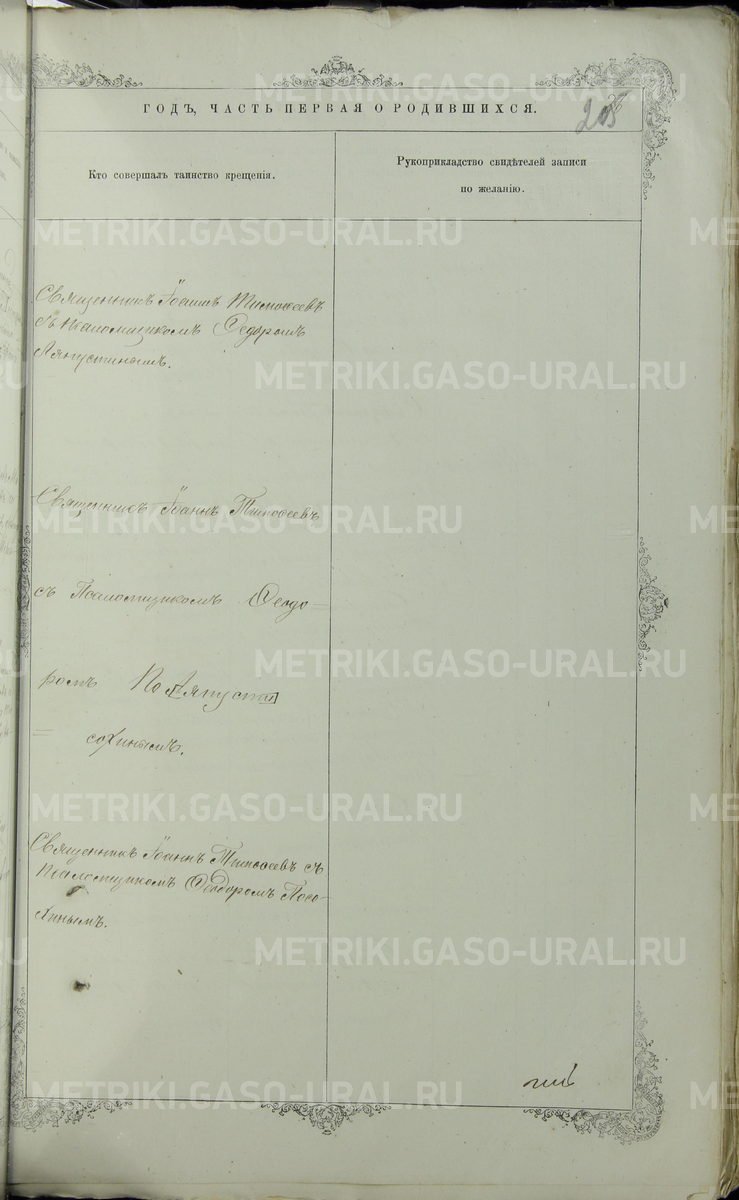 ГОДЪ, ЧАСТЬ ПЕРВАЯ О РОДИВШИХСЯ.
205
Кто совершалъ таинство крещенія.
Рукоприкладство свидѣтелей записи
по желанію.
Священникъ Іоаннъ Тимоѳеевъ
съ псаломщикомъ Ѳедоромъ
Ляпустинымъ.
Священникъ Іоаннъ Тимоѳеевъ
съ Псаломщикомъ Ѳеодо=
ромъ По
= сохинымъ.
Священникъ Іоаннъ Тимоѳеевъ съ
Псаломщикомъ Ѳеодоромъ Посо-
хинымъ.
METRIKI.GASO-URAL.RU